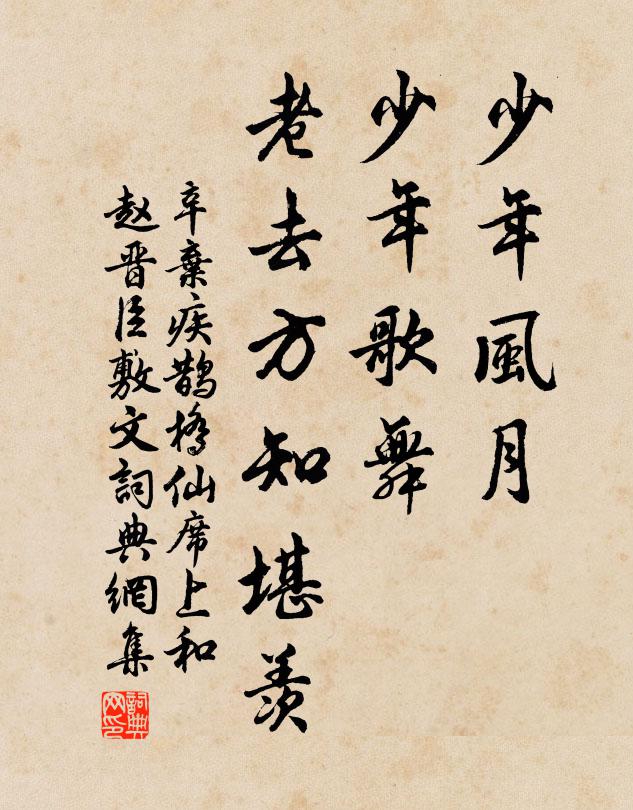 少年風月
少年歌舞
老去方知堪羨
辛棄疾鵲橋仙席上和
赵晋臣敷文詞典網集
詞典网印